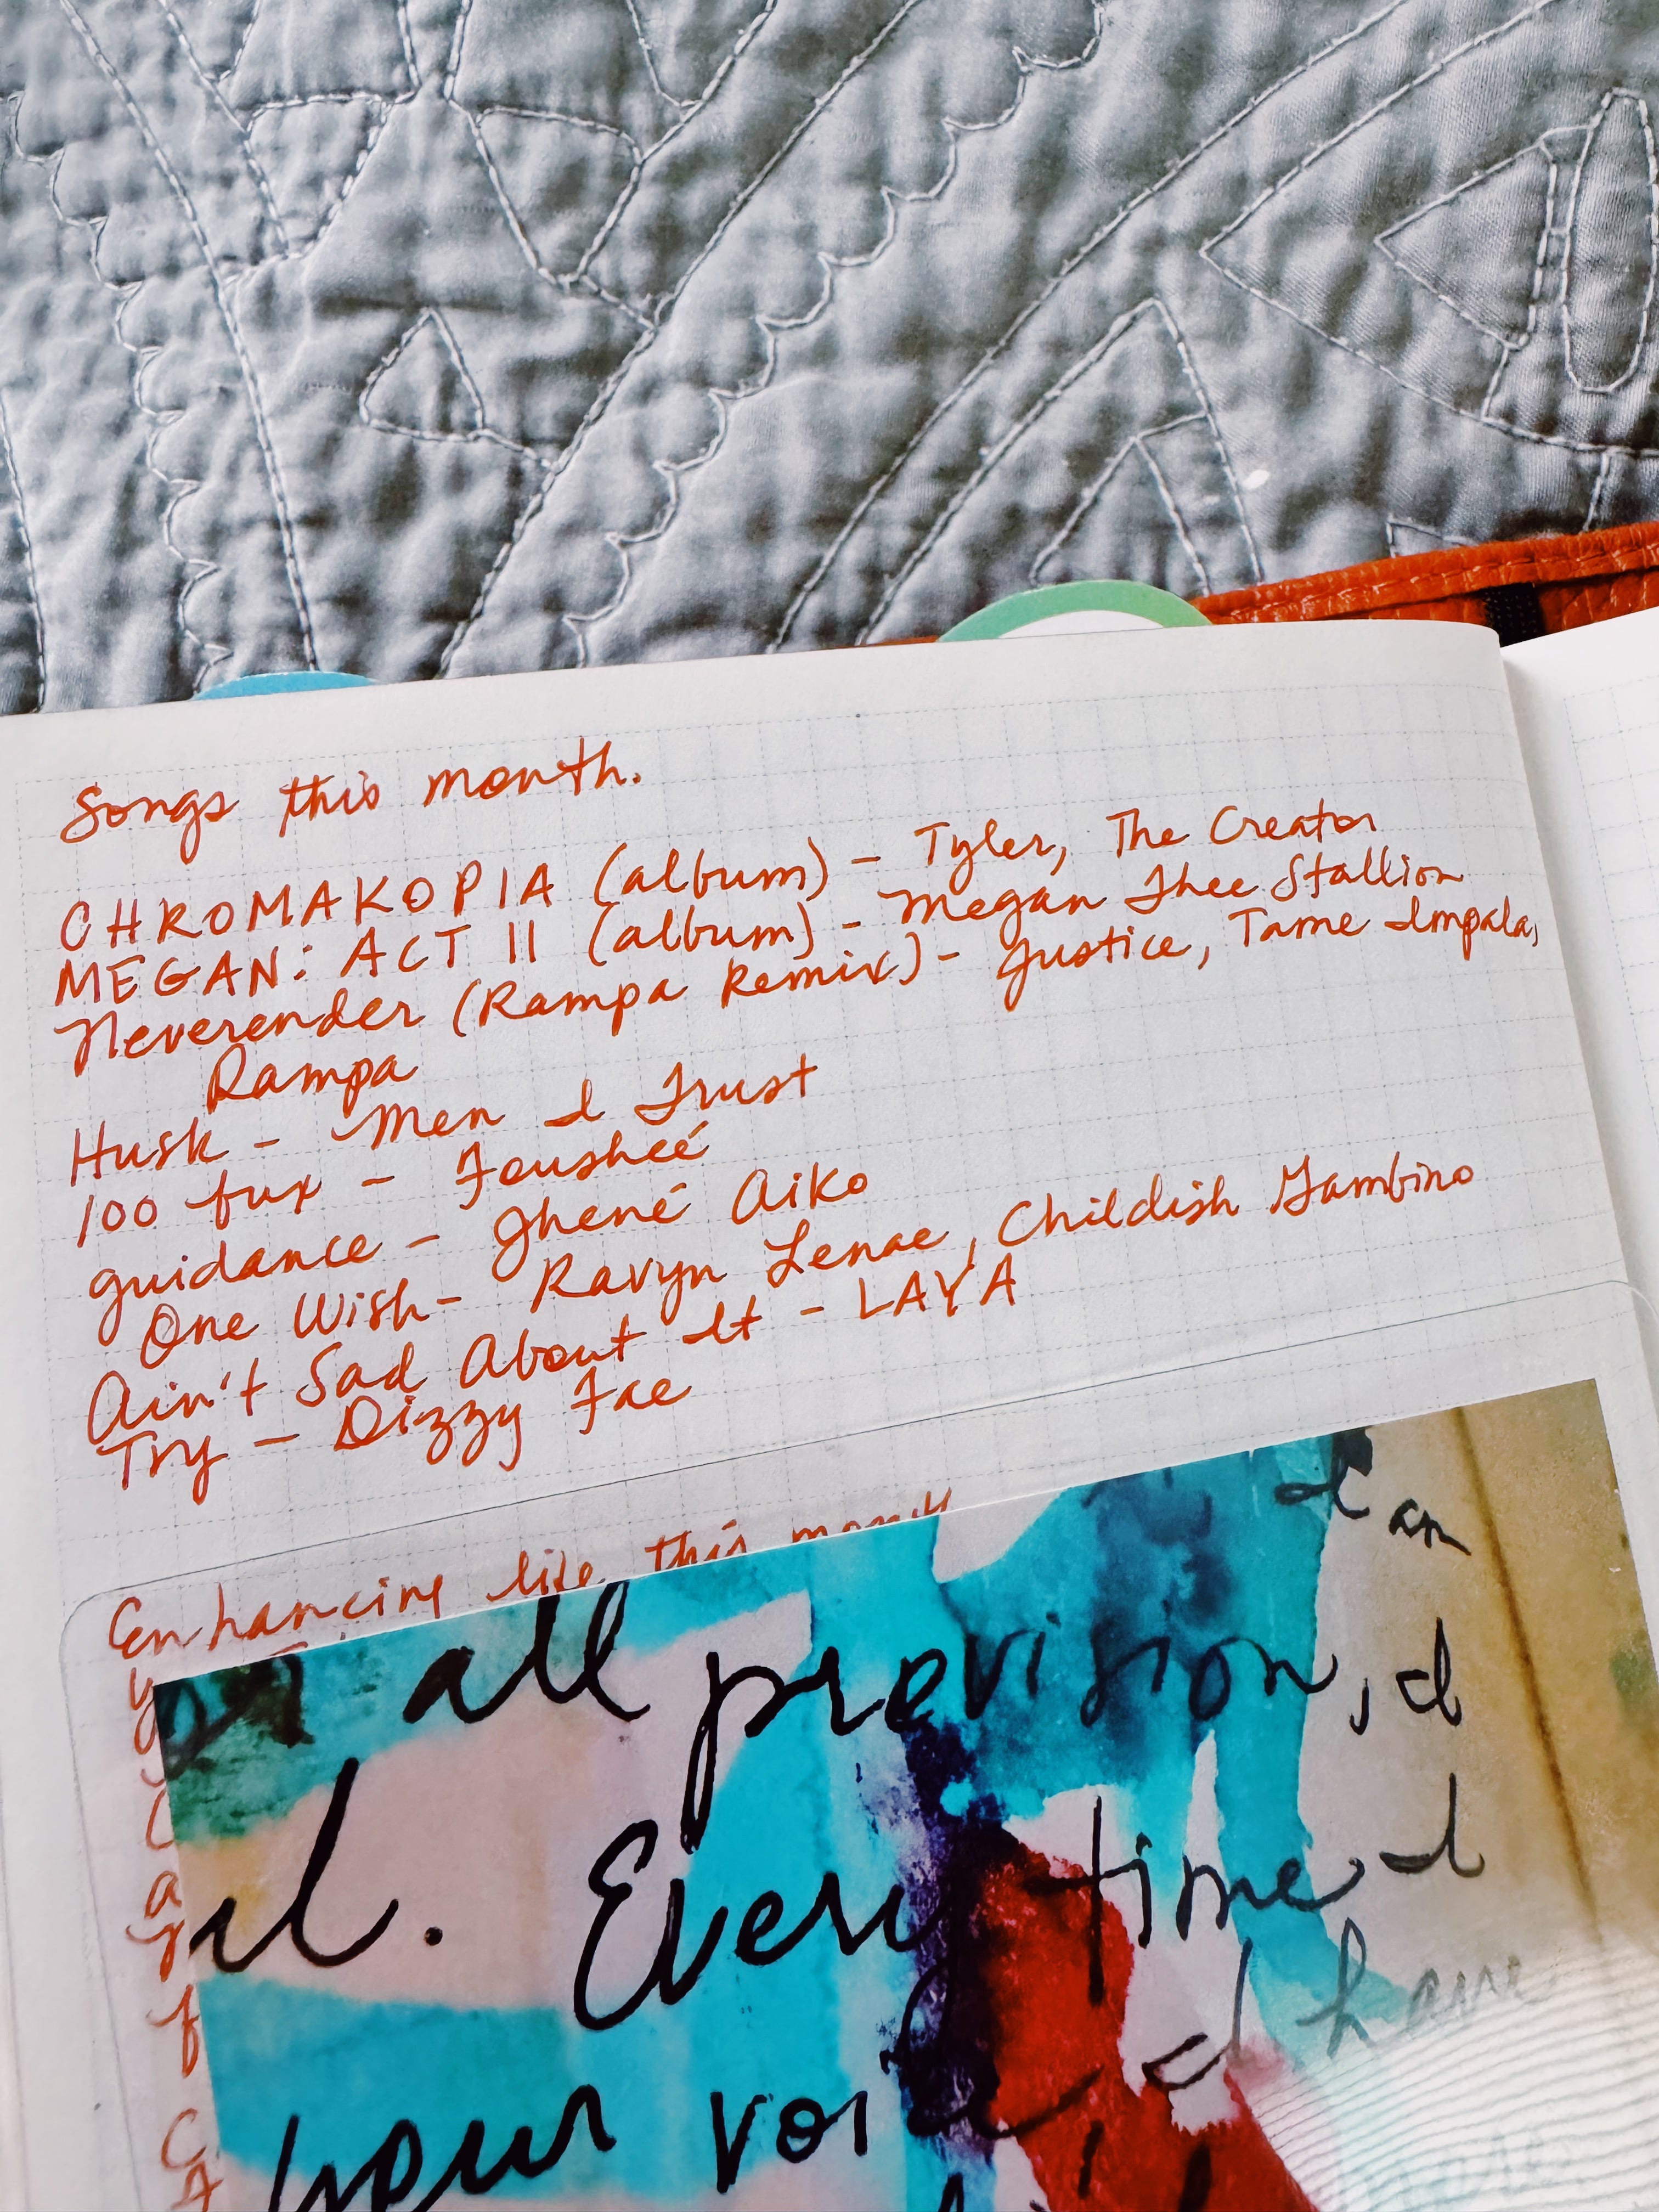 Songs this month.
CHROMAKOPIA (album) - Tyler, The Creator
MEGAN: ACT II (album) - Megan Thee Stallion
Neverender (Rampa Remix) - Justice, Tame Impala,
Rampa
Husk - Men I Trust
100 fux - Fousheé
guidance - Jhené Aiko
One Wish - Ravyn Lenae, Childish Gambino
Ain't Sad About It - LAYA
Try - Dizzy Fae
Enhancing life this month
I am
all provision, I
Every time I
I have
your voice,